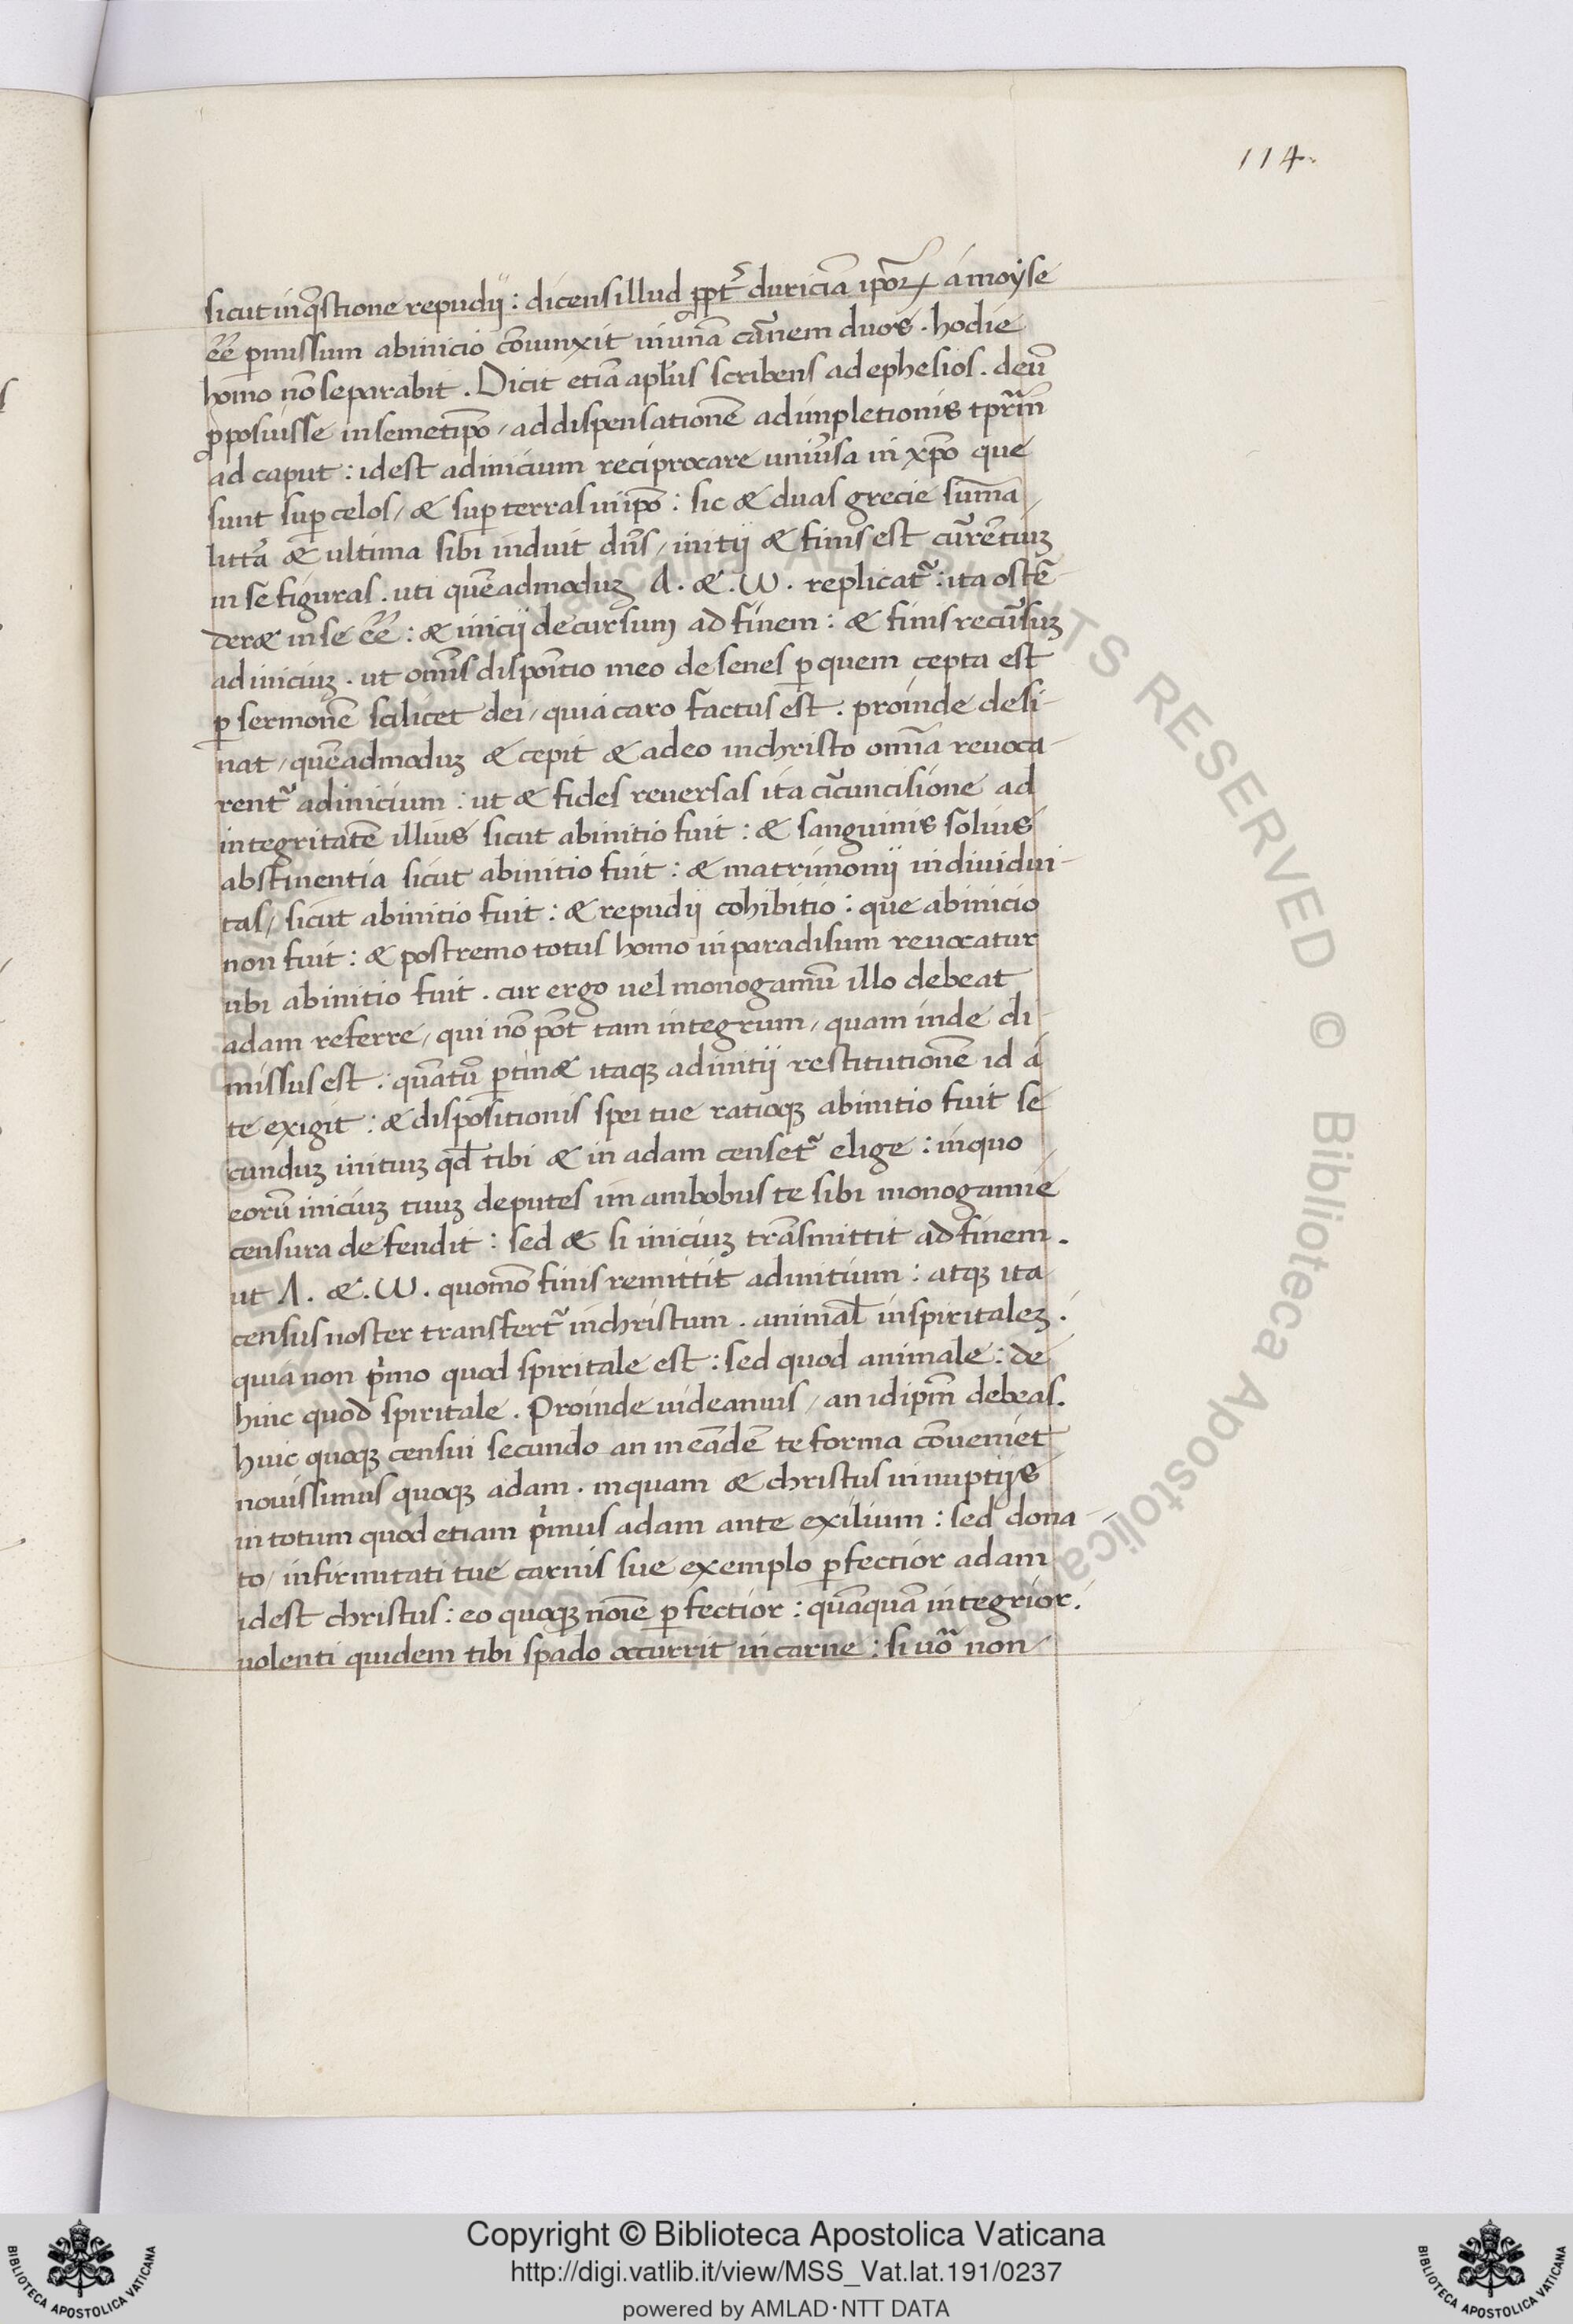 114.
sicut in q̄stione repudij : dicens illud ꝓpt᷑ duriciā ip̄oꝝ á moÿse
ēē ꝑmissum ab inicio cōiunxit in unā carnem duos . hodie
homo nō separabit . Dicit etiā apl̄us scribens ad ephesios . deū
ꝓposuisse in semetip̄o / ad dispensationē adimpletionis tp̄rm̄
ad caput : idest ad inicium reciprocare uniūsa in xp̄o que
sunt suꝑ celos / & suꝑ terras in ip̄o : sic & duas grecie suma
littā & ultima sibi induit dn̄s / initij & finis est cur̄ētiuꝫ
in se figuras . uti quēadmoduꝫ A . & . ω . replicat᷑ : ita ostē
deræ in se ēē : & inicij decursum ad finem : & finis recūsuꝫ
ad iniciuꝫ . ut om̄is dispōitio in eo desenes ꝑ quem cepta est
ꝑ sermonē scilicet dei / quia caro factus est . proinde desi-
nat / quēadmoduꝫ & cepit & adeo in christo om̄ia reuoca-
rent᷑ ad inicium : ut & fides reuersas ita cīcuncisione ad
integritatē illius sicut ab initio fuit : & sanguinis solius
abstinentia sicut ab initio fuit : & matrimonij indiuidui-
tas / sicut ab initio fuit : & repudij cohibitio : que ab inicio
non fuit : & postremo totus homo in paradisum reuocatur
ubi ab initio fuit . cur ergo uel monogamū illo debeat
adam referre / qui nō pōt tam integrum / quam inde di
missus est : quātū ꝑtinæ itaqꝫ ad initij restitutionē id á
te exigit : & dispositionis spei tue ratioqꝫ ab initio fuit se
cunduꝫ initiuꝫ qd̄ tibi & in adam censet᷑ elige : in quo
eorū iniciuꝫ tuuꝫ deputes im ambobus te sibi monogamie
censura defendit : sed & si iniciuꝫ trāsmittit ad finem .
ut A . & . ω . quomō finis remittit ad initium : atqꝫ ita
census noster transfert᷑ in christum . animal̄ in spiritaleꝫ .
quia non pͥmo quod spiritale est : sed quod animale : de
hinc quod spiritale . Proinde uideamus / an idip̄m debeas .
huic quoqꝫ censui secundo an in eādē te forma cōueniet
nouissimus quoqꝫ adam . inquam & christus in nuptijs
in totum quod etiam pͥmus adam ante exilium : sed dona-
to / infirmitati tue carnis sue exemplo ꝑfectior adam
idest christus : eo quoqꝫ noīe ꝑfectior : quāquā integrior .
uolenti quidem tibi spado occurrit in carne : si uō non
Copyright © Biblioteca Apostolica Vaticana
http://digi.vatlib.it/view/MSS_Vat.lat.191/0237
powered by AMLAD·NTT DATA